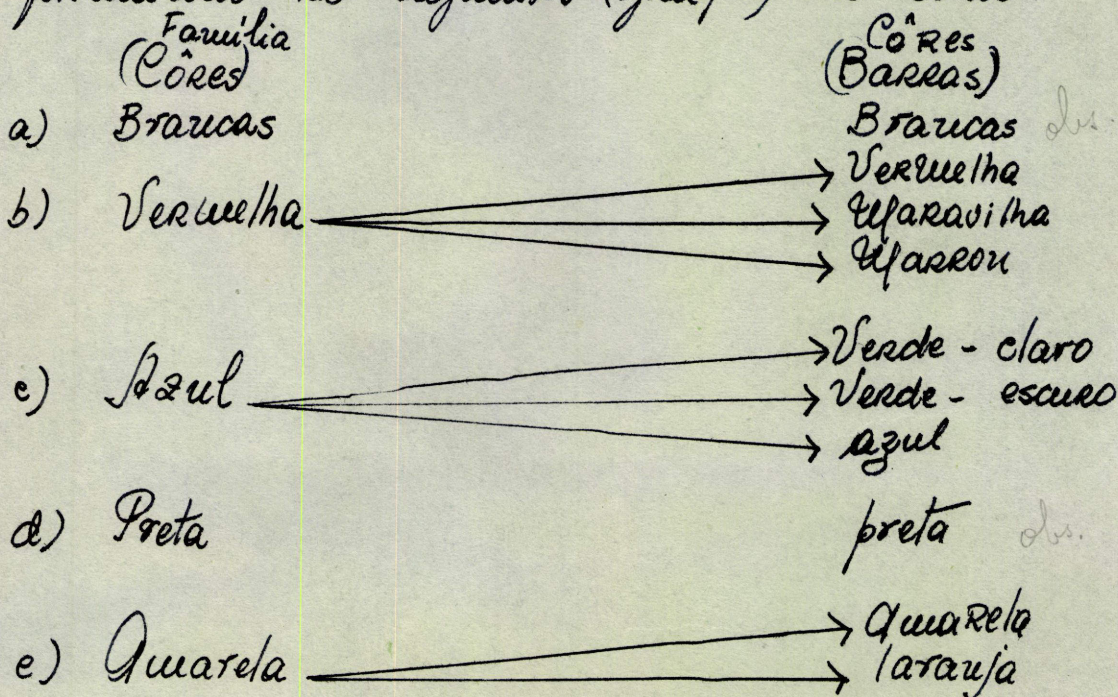 Família Côres
(Côres) (Barras)
a) Brancas Brancas obs.
Vermelha
b) Vermelha Maravilha
Marron
Verde - claro
c) Azul Verde - escuro
azul
d) Preta preta obs.
Amarela
e) Amarela laranja